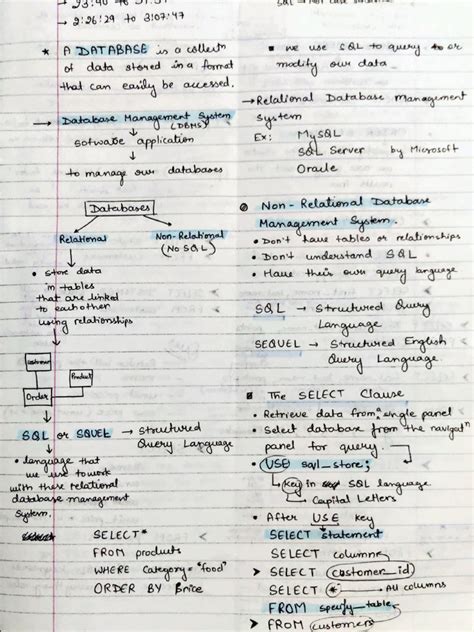 → 23:40 to 51:51
→ 2:26:29 to 3:07:47
★ A DATABASE is a collectn
of data stored in a format
that can easily be accessed.
→ Database Management System
(DBMS)
software application
to manage our databases
Databases
Relational
Non-Relational
(No SQL)
• store data
in tables
that are linked
to eachother
using relationships
Customer
Product
Order
SQL or SQUEL → Structured
Query Language
• language that
we use to work
with these relational
database management
system.
SELECT *
FROM products
WHERE Category = "food"
ORDER BY Price
we use SQL to query or
modify our data
→ Relational Database Management
System
Ex: MySQL
SQL Server by Microsoft
Oracle
Non-Relational Database
Management System.
• Don't have tables or relationships
• Don't understand SQL
• Have their own query language
SQL → Structured Query
Language
SEQUEL → Structured English
Query Language
The SELECT Clause
• Retrieve data from single panel
• Select database from the navigatn
panel for query.
• USE sql_store;
key in SQL language
Capital Letters
• After USE key
SELECT statement
SELECT column
> SELECT customer_id
SELECT * → All columns
FROM specify_table
> FROM customers